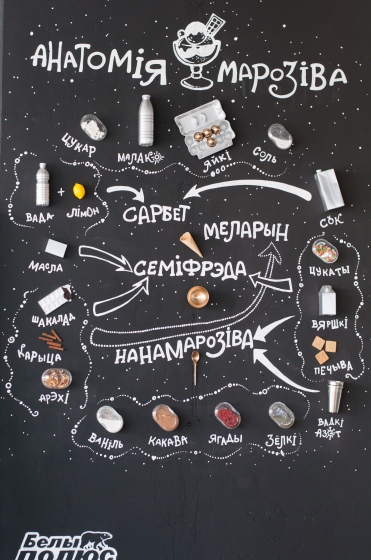 АНАТОМІЯ МАРОЗІВА
ЦУКАР
МАЛАКО
ЯЙКІ
СОЛЬ
ВАДА + ЛІМОН
САРБЕТ
СОК
МЕЛАРЫН
МАСЛА
СЕМІФРЭДА
ЦУКАТЫ
ШАКАЛАД
ВЯРШКІ
НАНАМАРОЗІВА
КАРЫЦА
ПЕЧЫВА
АРЭХІ
ВАДКІ
АЗОТ
ВАНІЛЬ
КАКАВА
ЯГАДЫ
ЗЁЛКІ
Белы
полюс